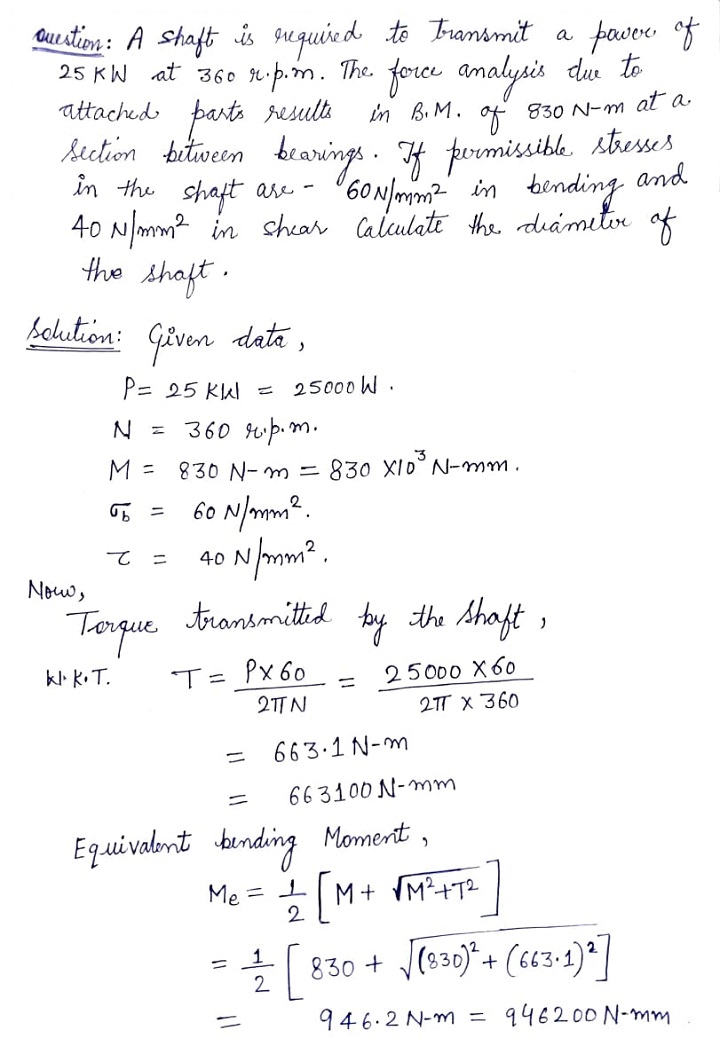 Question: A shaft is required to transmit a power of
25 KW at 360 r.p.m. The force analysis due to
attached parts results in B.M. of 830 N-m at a
section between bearings. If permissible stresses
in the shaft are - 60 N/mm² in bending and
40 N/mm² in shear Calculate the diameter of
the shaft.
Solution: Given data,
P = 25 KW = 25000 W.
N = 360 r.p.m.
M = 830 N-m = 830 X10³ N-mm.
σb = 60 N/mm².
τ = 40 N/mm².
Now,
Torque transmitted by the shaft,
W.K.T. T = PX60 / 2πN = 25000 X60 / 2π X 360
= 663.1 N-m
= 663100 N-mm
Equivalent bending Moment,
Me = 1/2 [M + √M²+T²]
= 1/2 [830 + √(830)² + (663.1)²]
= 946.2 N-m = 946200 N-mm